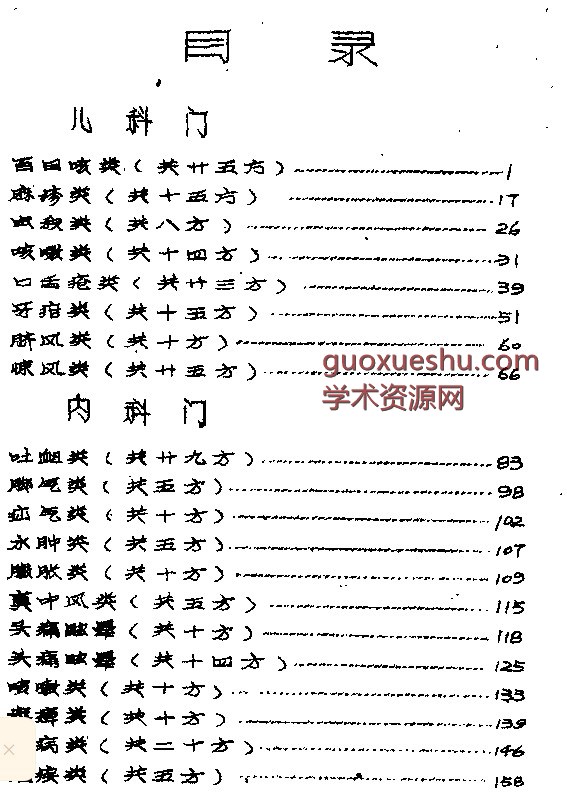 目 录
儿 科 门
百日咳类（共廿五方） 1
麻疹类（共十五方） 17
虫积类（共八方） 26
咳嗽类（共十四方） 31
口舌疮类（共廿三方） 39
牙疳类（共十五方） 51
脐风类（共十方） 60
惊风类（共廿五方） 66
guoxueshu.com
学术资源网
内 科 门
吐血类（共廿九方） 83
脚气类（共五方） 98
疝气类（共十方） 102
水肿类（共五方） 107
臌胀类（共十方） 109
真中风类（共五方） 115
头痛眩晕（共十方） 118
头痛眩晕（共十四方） 125
咳嗽类（共十方） 133
类（共十方） 139
病类（共二十方） 146
类（共五方） 158